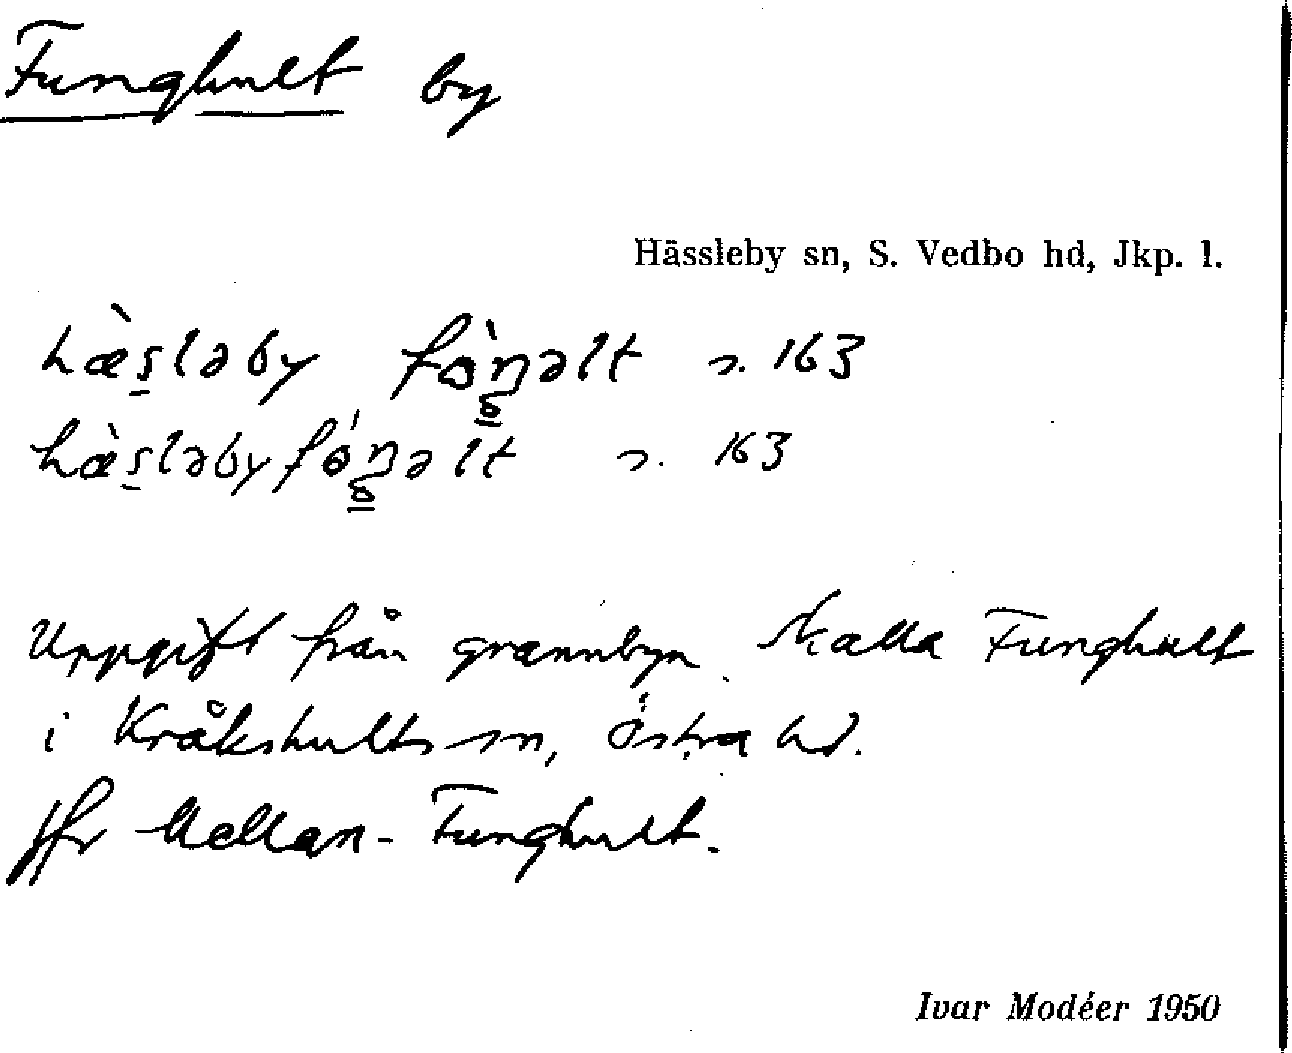 Funghult by
Hässleby sn, S. Vedbo hd, Jkp. l.
hæ̀s̠ləby fòŋəlt s. 163
hæ̀s̠ləbyfóŋəlt s. 163
Uppgift från grannbyn Skälla Funghult
i Kråkshults sn, Östra hd.
Jfr Mellan-Funghult.
Ivar Modéer 1950